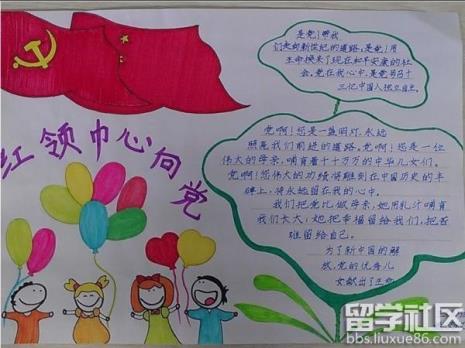 红领巾心向党
是党!帮我
们走向新世纪的道路,是党!用
生命换来了现在和平安康的社
会,党在我心中,是党号召十
三亿中国人独立自主。
党啊!您是一盏明灯,永远
照亮我们前进的道路。党啊!您是一位
伟大的母亲,哺育着千千万万的中华儿女们。
党啊!您的功绩,将雕刻在中国历史的丰
碑上,将永远留在我的心中。
我们把党比做母亲,她用乳汁哺育
我们长大,她把幸福留给我们,把苦
难留给自己。
为了新中国的解
放,党的优秀儿
女献出了生命
留学社区
bbs.liuxue86.com